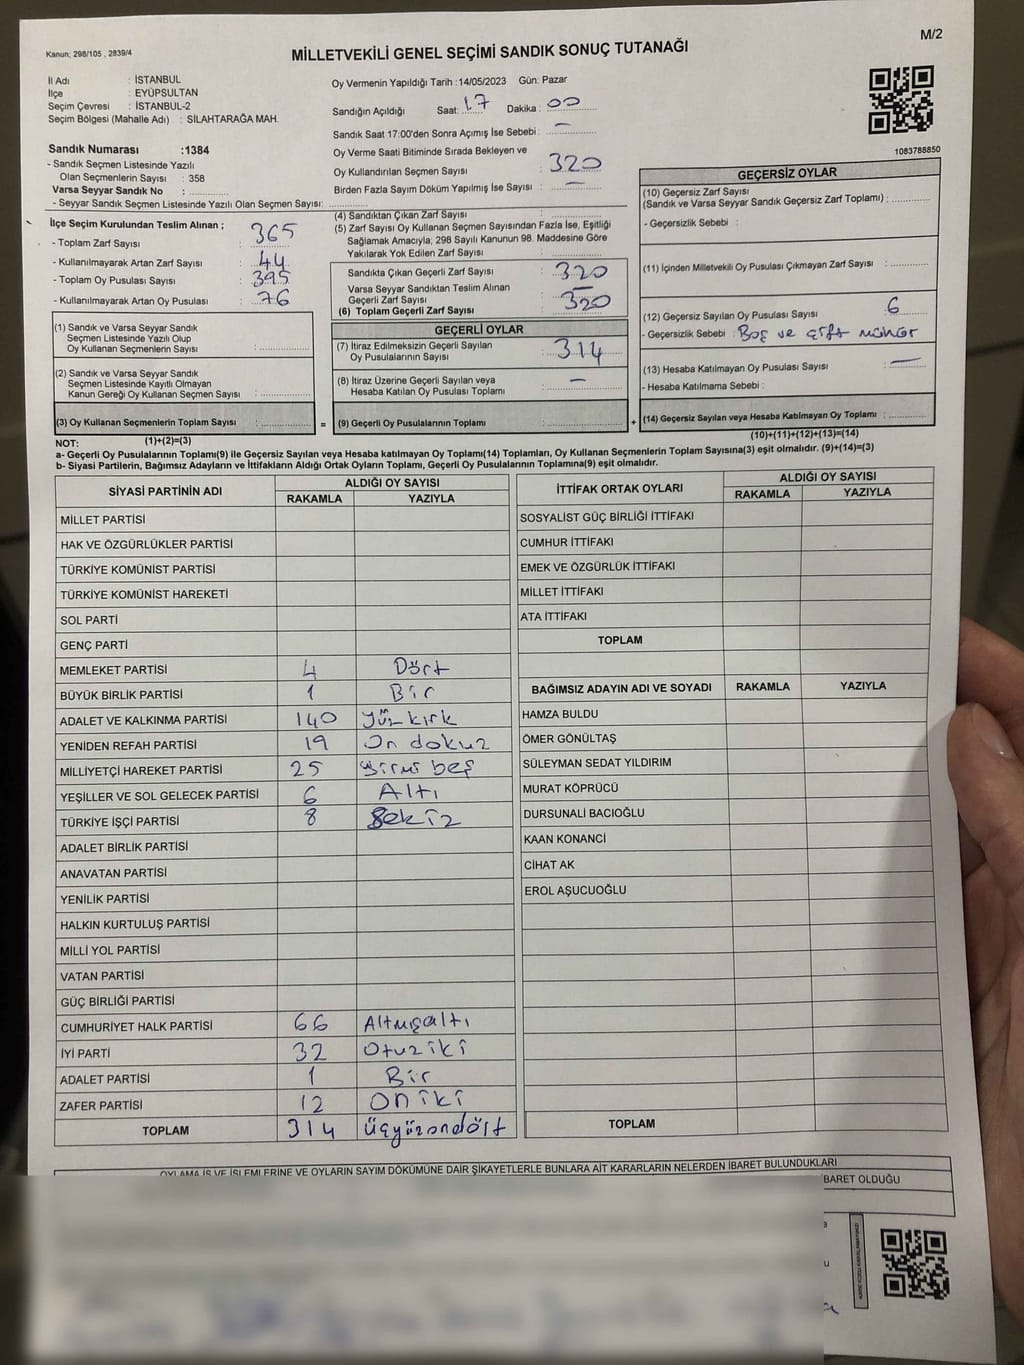 M/2
Kanun: 298/105 , 2839/4
MİLLETVEKİLİ GENEL SEÇİMİ SANDIK SONUÇ TUTANAĞI
İl Adı : İSTANBUL
İlçe : EYÜPSULTAN
Seçim Çevresi : İSTANBUL-2
Seçim Bölgesi (Mahalle Adı) : SİLAHTARAĞA MAH.
Sandık Numarası :1384
- Sandık Seçmen Listesinde Yazılı
Olan Seçmenlerin Sayısı : 358
Varsa Seyyar Sandık No :
- Seyyar Sandık Seçmen Listesinde Yazılı Olan Seçmen Sayısı:
Oy Vermenin Yapıldığı Tarih :14/05/2023 Gün: Pazar
Sandığın Açıldığı Saat: 17 Dakika : 00
Sandık Saat 17:00'den Sonra Açımış İse Sebebi : —
Oy Verme Saati Bitiminde Sırada Bekleyen ve
Oy Kullandırılan Seçmen Sayısı : 320
Birden Fazla Sayım Döküm Yapılmış İse Sayısı : —
1083788850
İlçe Seçim Kurulundan Teslim Alınan ;
- Toplam Zarf Sayısı : 365
- Kullanılmayarak Artan Zarf Sayısı : 44
- Toplam Oy Pusulası Sayısı : 395
- Kullanılmayarak Artan Oy Pusulası : 76
(1) Sandık ve Varsa Seyyar Sandık
Seçmen Listesinde Yazılı Olup
Oy Kullanan Seçmenlerin Sayısı :
(2) Sandık ve Varsa Seyyar Sandık
Seçmen Listesinde Kayıtlı Olmayan
Kanun Gereği Oy Kullanan Seçmen Sayısı :
(3) Oy Kullanan Seçmenlerin Toplam Sayısı :
(4) Sandıktan Çıkan Zarf Sayısı :
(5) Zarf Sayısı Oy Kullanan Seçmen Sayısından Fazla İse, Eşitliği
Sağlamak Amacıyla; 298 Sayılı Kanunun 98. Maddesine Göre
Yakılarak Yok Edilen Zarf Sayısı :
Sandıkta Çıkan Geçerli Zarf Sayısı : 320
Varsa Seyyar Sandıktan Teslim Alınan
Geçerli Zarf Sayısı : —
(6) Toplam Geçerli Zarf Sayısı : 320
GEÇERLİ OYLAR
(7) İtiraz Edilmeksizin Geçerli Sayılan
Oy Pusulalarının Sayısı : 314
(8) İtiraz Üzerine Geçerli Sayılan veya
Hesaba Katılan Oy Pusulası Toplamı : —
= (9) Geçerli Oy Pusulalarının Toplamı :
GEÇERSİZ OYLAR
(10) Geçersiz Zarf Sayısı
(Sandık ve Varsa Seyyar Sandık Geçersiz Zarf Toplamı) :
- Geçersizlik Sebebi :
(11) İçinden Milletvekili Oy Pusulası Çıkmayan Zarf Sayısı :
(12) Geçersiz Sayılan Oy Pusulası Sayısı : 6
- Geçersizlik Sebebi : Boş ve çift mühür
(13) Hesaba Katılmayan Oy Pusulası Sayısı : —
- Hesaba Katılmama Sebebi :
+ (14) Geçersiz Sayılan veya Hesaba Katılmayan Oy Toplamı :
NOT: (1)+(2)=(3)
(10)+(11)+(12)+(13)=(14)
a- Geçerli Oy Pusulalarının Toplamı(9) ile Geçersiz Sayılan veya Hesaba katılmayan Oy Toplamı(14) Toplamları, Oy Kullanan Seçmenlerin Toplam Sayısına(3) eşit olmalıdır. (9)+(14)=(3)
b- Siyasi Partilerin, Bağımsız Adayların ve İttifakların Aldığı Ortak Oyların Toplamı, Geçerli Oy Pusulalarının Toplamına(9) eşit olmalıdır.
SİYASİ PARTİNİN ADI ALDIĞI OY SAYISI
RAKAMLA YAZIYLA
MİLLET PARTİSİ
HAK VE ÖZGÜRLÜKLER PARTİSİ
TÜRKİYE KOMÜNİST PARTİSİ
TÜRKİYE KOMÜNİST HAREKETİ
SOL PARTİ
GENÇ PARTİ
MEMLEKET PARTİSİ 4 Dört
BÜYÜK BİRLİK PARTİSİ 1 Bir
ADALET VE KALKINMA PARTİSİ 140 Yüz kırk
YENİDEN REFAH PARTİSİ 19 On dokuz
MİLLİYETÇİ HAREKET PARTİSİ 25 Yirmi beş
YEŞİLLER VE SOL GELECEK PARTİSİ 6 Altı
TÜRKİYE İŞÇİ PARTİSİ 8 Sekiz
ADALET BİRLİK PARTİSİ
ANAVATAN PARTİSİ
YENİLİK PARTİSİ
HALKIN KURTULUŞ PARTİSİ
MİLLİ YOL PARTİSİ
VATAN PARTİSİ
GÜÇ BİRLİĞİ PARTİSİ
CUMHURİYET HALK PARTİSİ 66 Altmışaltı
İYİ PARTİ 32 Otuziki
ADALET PARTİSİ 1 Bir
ZAFER PARTİSİ 12 Oniki
TOPLAM 314 Üçyüzondört
İTTİFAK ORTAK OYLARI ALDIĞI OY SAYISI
RAKAMLA YAZIYLA
SOSYALİST GÜÇ BİRLİĞİ İTTİFAKI
CUMHUR İTTİFAKI
EMEK VE ÖZGÜRLÜK İTTİFAKI
MİLLET İTTİFAKI
ATA İTTİFAKI
TOPLAM
BAĞIMSIZ ADAYIN ADI VE SOYADI RAKAMLA YAZIYLA
HAMZA BULDU
ÖMER GÖNÜLTAŞ
SÜLEYMAN SEDAT YILDIRIM
MURAT KÖPRÜCÜ
DURSUNALİ BACIOĞLU
KAAN KONANCİ
CİHAT AK
EROL AŞUCUOĞLU
TOPLAM
OYLAMA İŞ VE İŞLEMLERİNE VE OYLARIN SAYIM DÖKÜMÜNE DAİR ŞİKAYETLERLE BUNLARA AİT KARARLARIN NELERDEN İBARET BULUNDUKLARI
BARET OLDUĞU